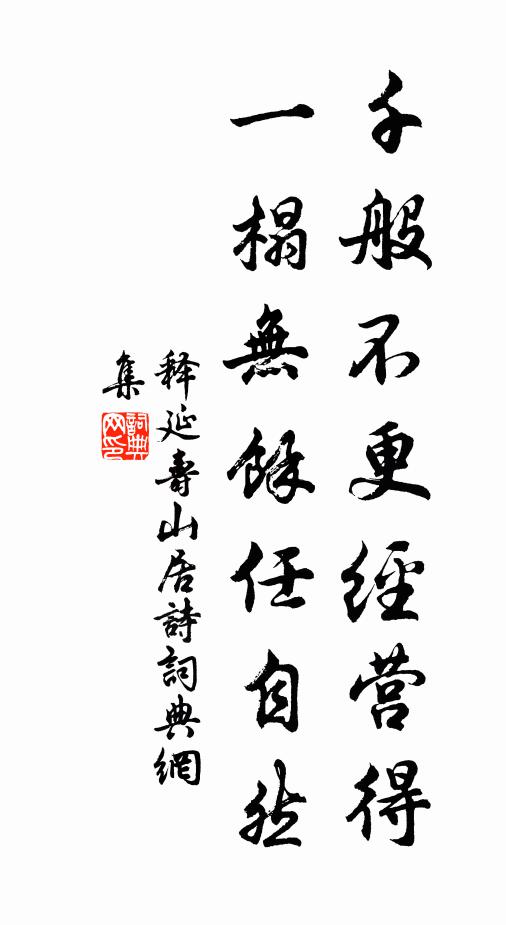 千般不更經营得
一榻無餘任自然
释延壽山居詩詞典網
集
詞典
网印